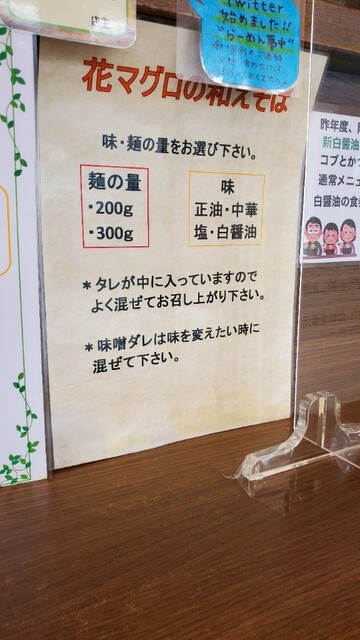 店主
Twitter
始めました!!
"らーめん夢中"
花マグロの和えそば
味・麺の量をお選び下さい。
麺の量
・200g
・300g
味
正油・中華
塩・白醤油
＊タレが中に入っていますので
よく混ぜてお召し上がり下さい。
＊味噌ダレは味を変えたい時に
混ぜて下さい。
昨年度、
新白醤油
コブとか
通常メニュ
白醤油の食